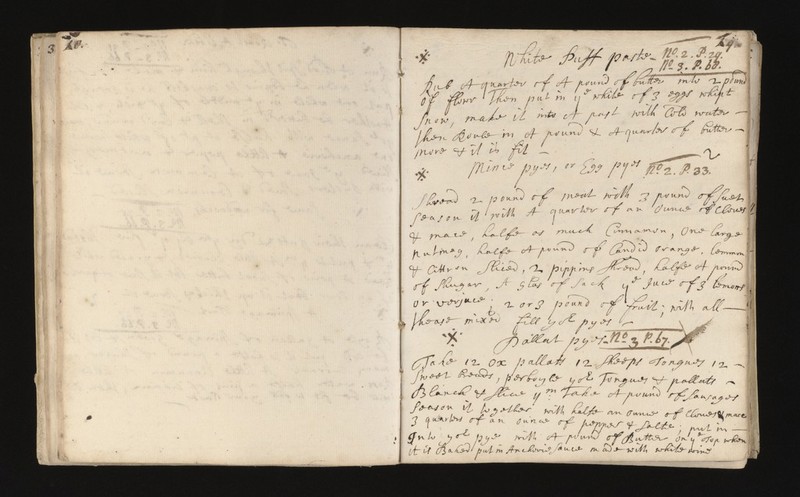 3
29
White Puff paste - No. 2. P. 29.
No. 3. P. 66.
Rub A quarter of A pound of butter into 2 pound
of flower Then put in ye white of 3 eggs whipt
Snow, make it into A past with Cold water -
Then Roule in A pound & A quarter of butter -
more & it is fit -
Mince pyes, or Egg pyes No. 2. P. 33.
Shread 2 pound of meat with 3 pound of Suet
Season it with A quarter of an Ounce of Cloves
& mace, halfe as much Cinnamon, One large
nutmeg, halfe A pound of Candid orange, Lemmon
& Cittron Sliced, 2 pippins Shread, halfe A pound
of Shugar, A glas of Sack ye Juce of 3 lemons
or verjuce; 2 or 3 pound of fruit; with all -
thease mixed fill yor pyes -
Pallat pyes - No. 3 P. 67.
Take 12 Ox pallats 12 Sheeps Tongues 12 -
Sweet Breads, perboyle yor Tongues & pallats -
Blanch & Slice ym Take A pound of Sausages
Season it together with halfe an ounce of Cloves & mace
3 quarters of an ounce of pepper & Salte; put in -
Into yor pye with A pound of Butter on ye Top when
it is Baked put in Anchovie Sauce made with white wine